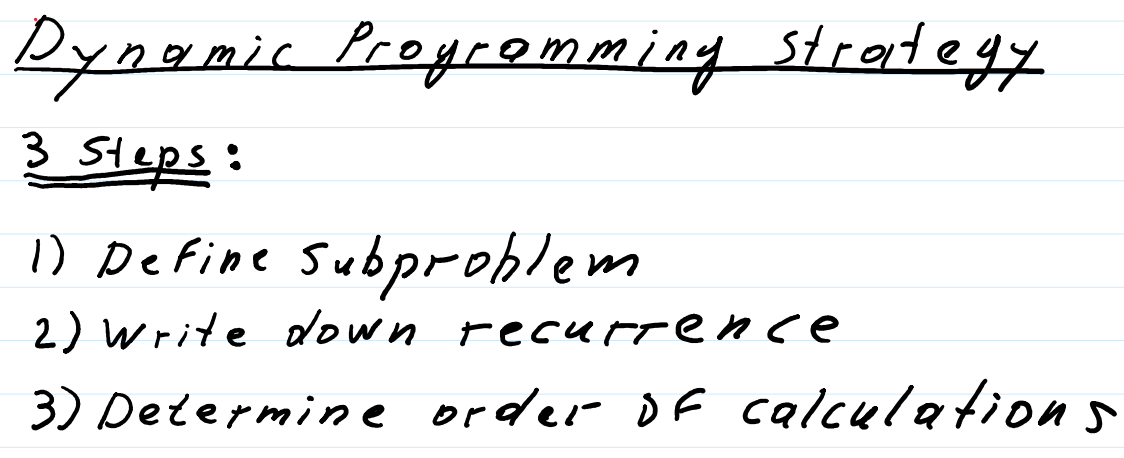 Dynamic Programming Strategy
3 Steps:
1) Define Subproblem
2) Write down recurrence
3) Determine order of calculations